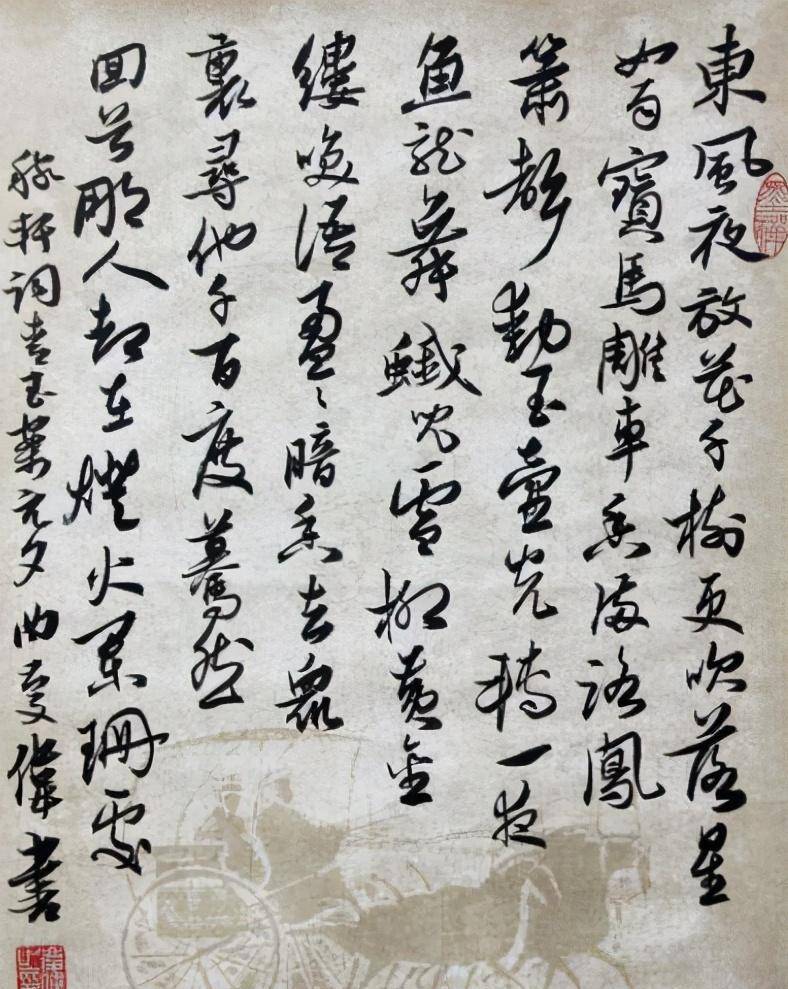 東風夜放花千樹更吹落星
如雨寶馬雕車香滿路鳳
簫聲動玉壺光轉一夜
魚龍舞蛾兒雪柳黄金
縷咲語盈々暗香去眾
裏尋他千百度驀然
回首那人却在燈火闌珊處
稼軒詞青玉案元夕曲偉書